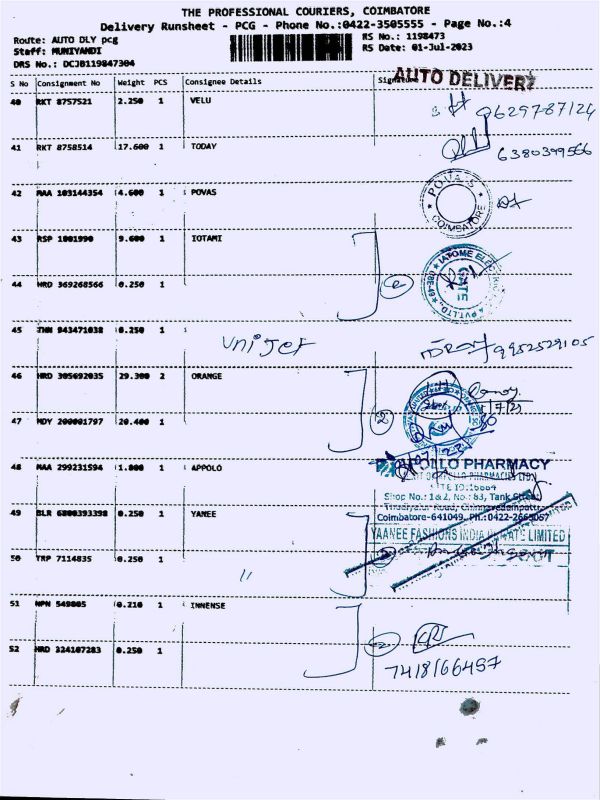 THE PROFESSIONAL COURIERS, COIMBATORE
Delivery Runsheet - PCG - Phone No.:0422-3505555 - Page No.:4
Route: AUTO DLY pcg RS No.: 1198473
Staff: MUNIYANDI RS Date: 01-Jul-2023
DRS No.: DCJB119847304
S No Consignment No Weight PCS Consignee Details Signature AUTO DELIVERY
40 RKT 8757521 2.250 1 VELU
9629787124
41 RKT 8758514 17.600 1 TODAY
6380399566
42 MAA 103144354 4.600 1 POVAS POVAS COIMBATORE
43 RSP 1001990 9.600 1 IOTAMI
44 HRD 369268566 0.250 1
45 943471038 0.250 1 UNIJET 9952529105
46 HRD 305692035 29.300 2 ORANGE
47 MDY 200001797 20.400 1
48 MAA 299231594 1.000 1 APPOLO
PHARMACY
Shop No.: 1&2, No.: 83, Tank Street
Coimbatore-641049. Ph.:0422-2665067
49 BLR 6800393398 0.250 1 YANEE
YAANEE FASHIONS INDIA PRIVATE LIMITED
50 TRP 7114835 0.250 1 "
51 NPN 549805 0.210 1 INNENSE
52 HRD 324107283 0.250 1
7418166457